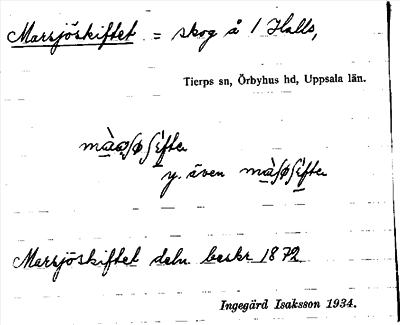 Marsjöskiftet = skog å 1 Halls,
Tierps sn, Örbyhus hd, Uppsala län.
y. även
Marsjöskiftet deln. beskr 1872
Ingegärd Isaksson 1934.